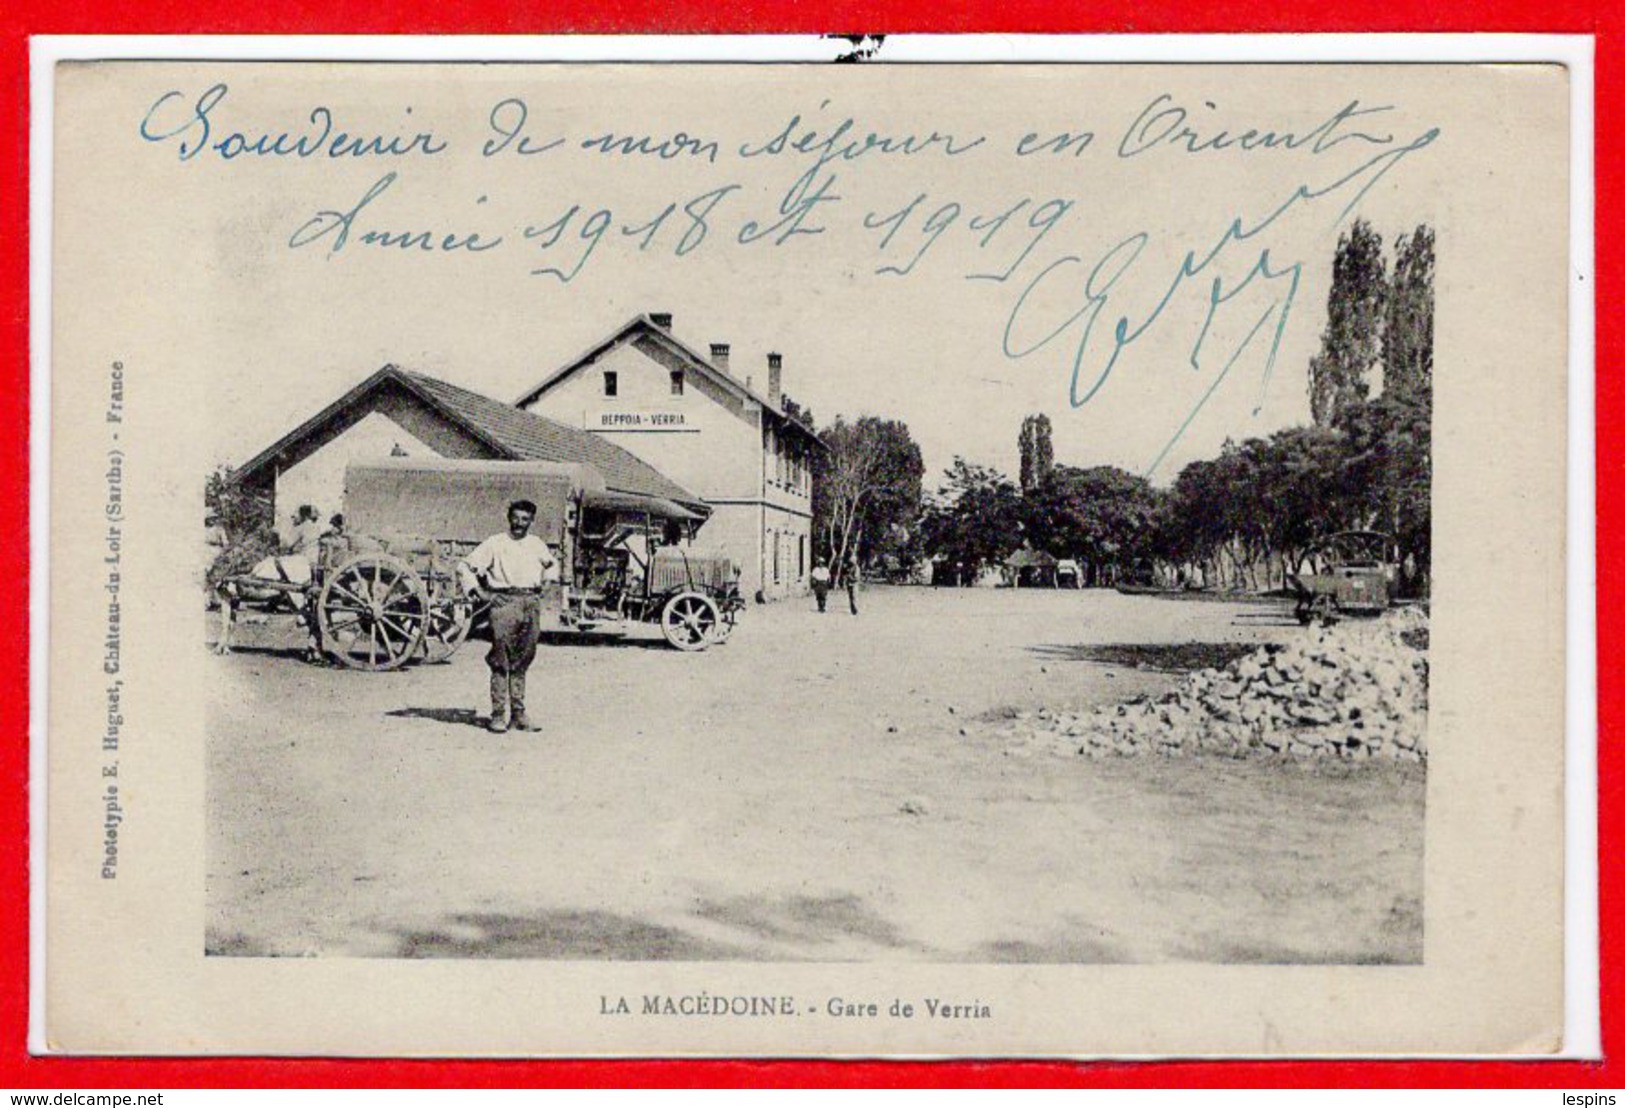 Souvenir de mon séjour en Orient
Année 1918 et 1919
ΒΕΡΡΟΙΑ - VERRIA
Phototypie E. Huguet, Château-du-Loir (Sarthe) - France
LA MACÉDOINE. - Gare de Verria
www.delcampe.net
lespins